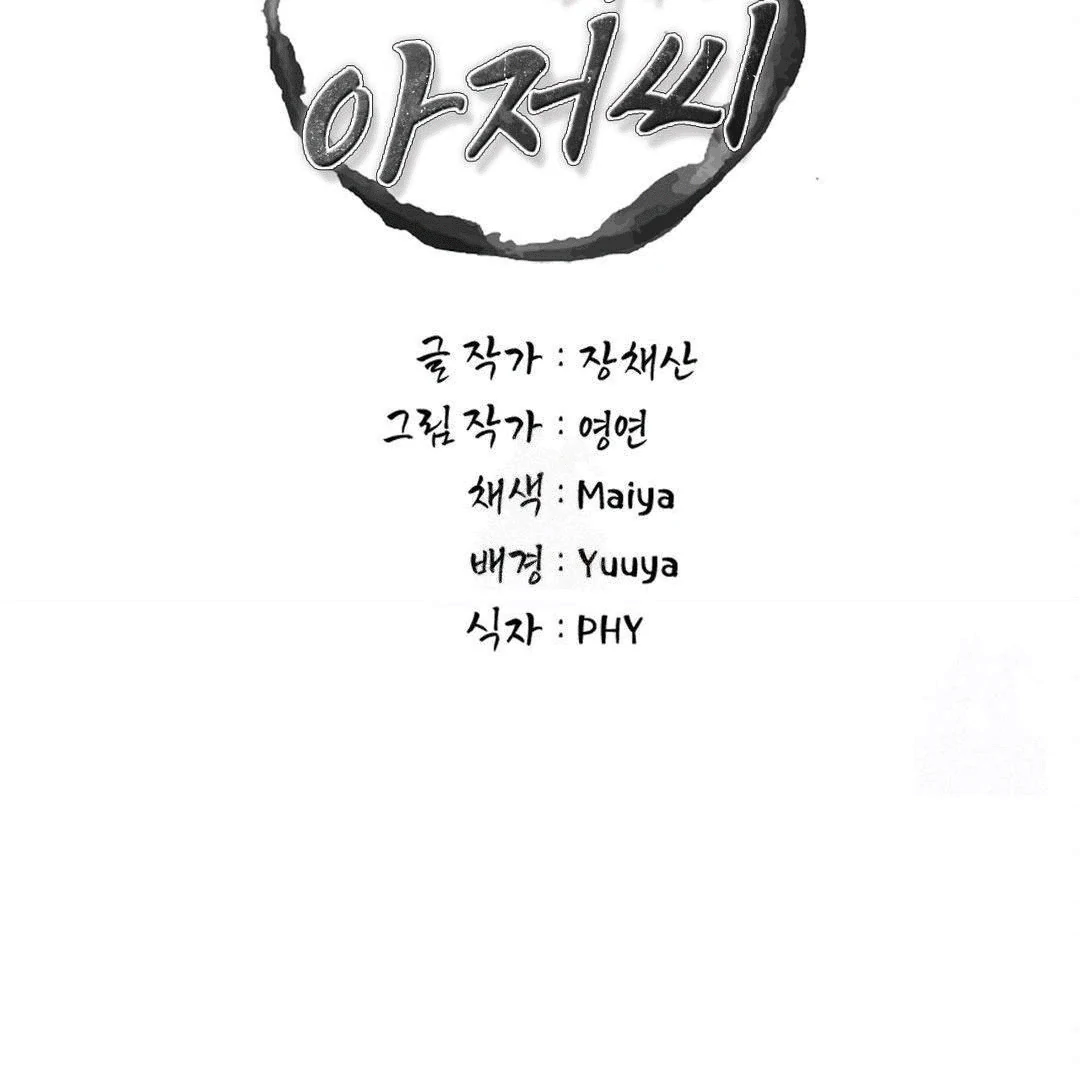 아저씨
글 작가 : 장채산
그림 작가 : 영연
채색 : Maiya
배경 : Yuuya
식자 : PHY